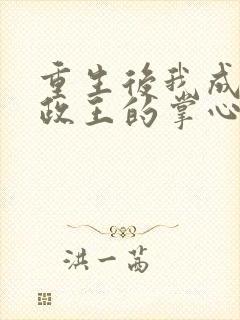 重生後我成
政王的掌心
洪一茜